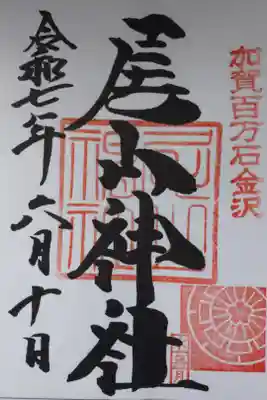 加賀百万石金沢
尾山神社
令和七年六月十日